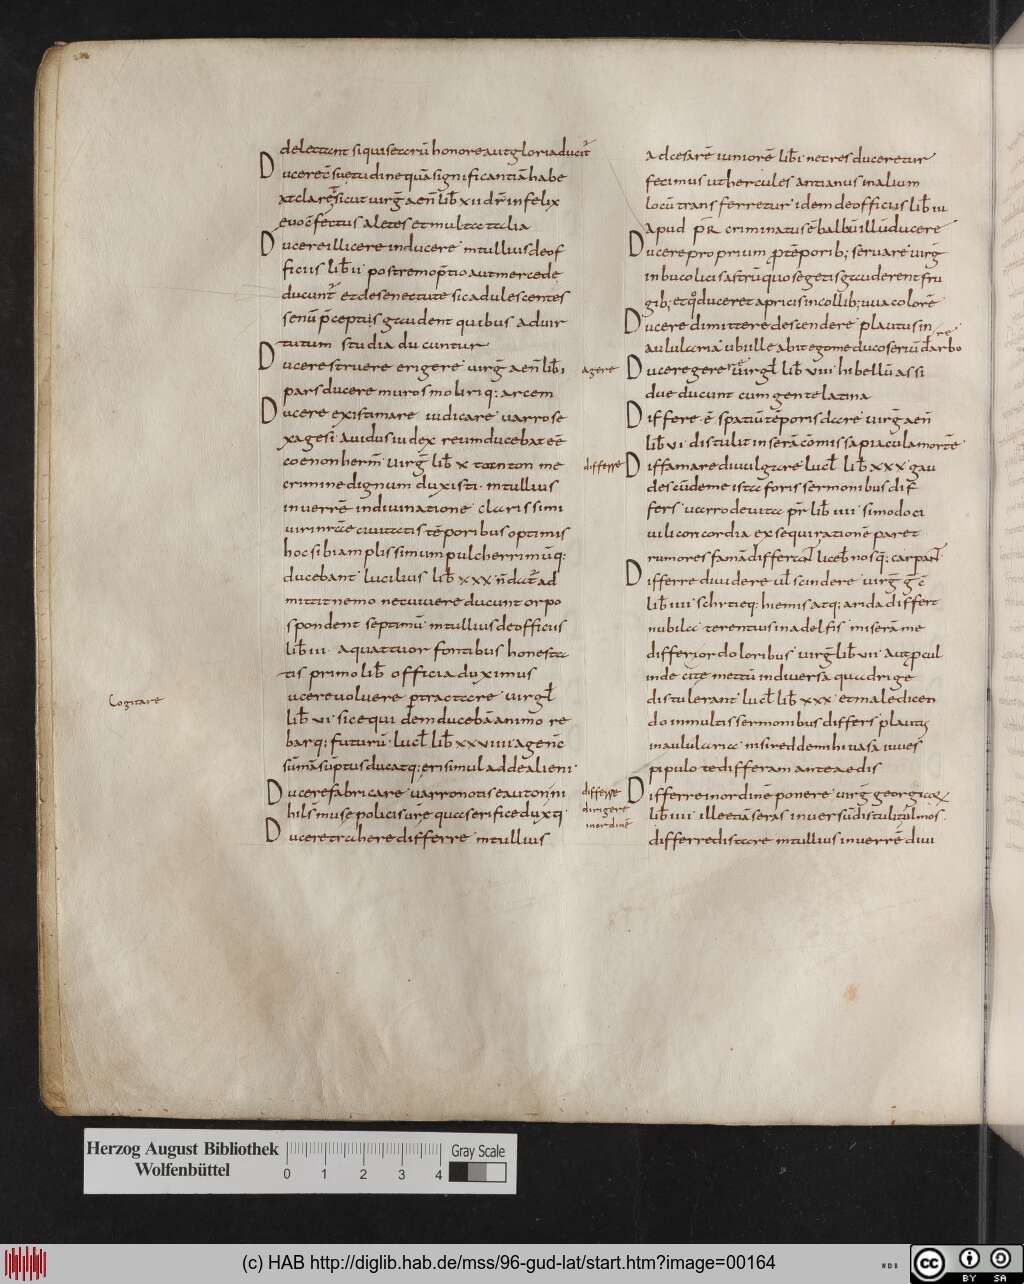 delectant si quis etarū honore aut gloria ducit̄
Ducere c̄suetudine quā significantiā habe
at clarę sicut uirḡ aen̄ lib̄ xii dr̄ infelix
euoc̄ fętus aletes et multa talia
Ducere illicere inducere mtullius deof
ficiis lib̄ ii postremo p̄tio aut mercede
ducunt̄ et de senectute sic adulescentes
senū p̄ceptis gaudent quibus aduir
tutum studia ducuntur
Ducere struere erigere uirḡ aen̄ lib̄ i
pars ducere muros moliri q: arcem
Ducere existimare iudicare uarro se
xagesi auidus iudex reum ducebat eē
coenon herm̄ uirḡ lib̄ x tanton me
crimine dignum duxisti mtullius
in uerrē indiuinatione clarissimi
uiri nr̄ae ciuitatis tēporibus optimis
hoc sibi amplissimum pulcherrimūq:
ducebant lucilius lib̄ xxx n̄ dat̄ ad
mittit nemo nec uiuere ducunt or po
spondent septimū mtullius de officiis
lib̄ iii a quattuor fontibus honesta
tis primo lib̄ officia duximus
Cogitare
ucere uoluere p̄tractare uirgł
lib̄ vi sic equidem ducebā animo re
barq: futurū lucł lib̄ xxviiii agenc̄
sūmā sūptus ducatq: eri simul adde alieni
Ducere fabricare uarro notis eautonti
Ducere trahere differre mtullius
ad cesarē iuniorē lib̄ i nec res duceretur
fecimus ut hercules antianus in alium
locū transferretur idem de officiis lib̄ iii
apud pr̄ criminatus ē balbū illū ducere
Ducere proprium p̄ tēporib; seruare uirḡ
in bucolicis astrū quo segetis gauderent fru
gib; et q̊ duceret apricis in collib; uua colorē
Ducere dimittere descendere plautus in
aulularia ubi ille abit ego me duco seriū
agere
Ducere gerere uirgł lib̄ viii hi bellū assi
due ducunt cum gente latina
Differe ē spatiū tēporis dare uirḡ aen̄
lib̄ vi distulit in serā cōmissa piacula mortē
differre
Diffamare diuulgare lucł lib̄ xxx gau
des cū de me ista foris sermonibus dif
fers uarro de uita pr̄ lib̄ iiii
uili concordia exsequi rationē paret
rumores famā differant licebit nosq; carpant
Differre diuidere ul̄ scindere uirḡ gḡ
lib̄ iiii hiemis atq: arida differt
nubila terentius in adelfis miserā me
differior doloribus uirḡ lib̄ vii aut p̄cul
inde cite mettū in diuersa quadrige
distulerant lucł lib̄ xxx et maledicen
do in multis sermonibus differs plautus
in aulularia nisi reddemihi uasa iuues
pipulo te differam ante aedis
differre
dirigere
inordinē
Differre in ordinē ponere uirḡ georgicor̄
lib̄ iiii ille etiā seras in uersū distulit ulmos
differre distare mtullius in uerrē diui
Herzog August Bibliothek
Wolfenbüttel
0 1 2 3 4
Gray Scale
(c) HAB http://diglib.hab.de/mss/96-gud-lat/start.htm?image=00164
cc BY SA